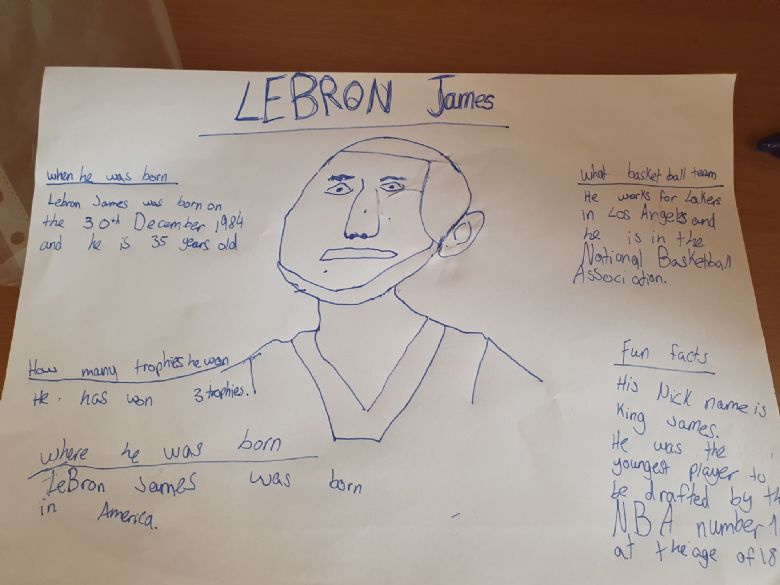 LEBRON James
when he was born
Lebron James was born on
the 30th December 1984
and he is 35 years old
How many trophies he won
He has won 3 trophies.
where he was born
LeBron James was born
in America.
What basket ball team
He works for Lakers
in Los Angels and
he is in the
National Basketball
Association.
Fun facts
His Nick name is
King James.
He was the
youngest player to
be drafted by th
NBA number 1
at the age of 18